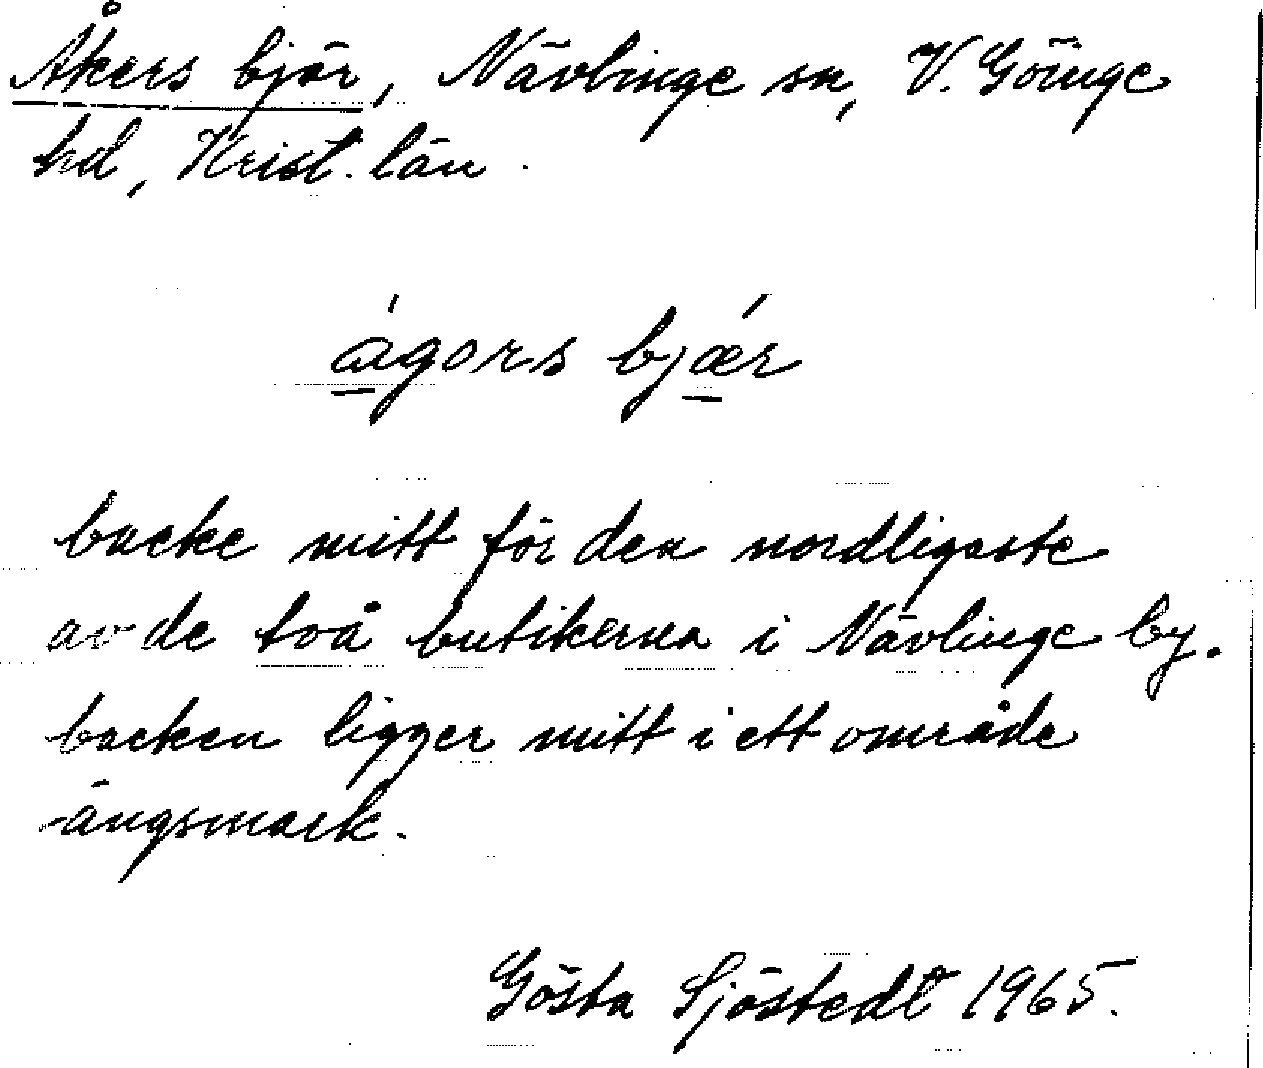 Åkers bjär, Nävlinge sn, V. Göinge
hd, Krist. län.
ágors bjǽr
backe mitt för den nordligaste
av de två butikerna i Nävlinge by.
backen ligger mitt i ett område
ängsmark.
Gösta Sjöstedt 1965.